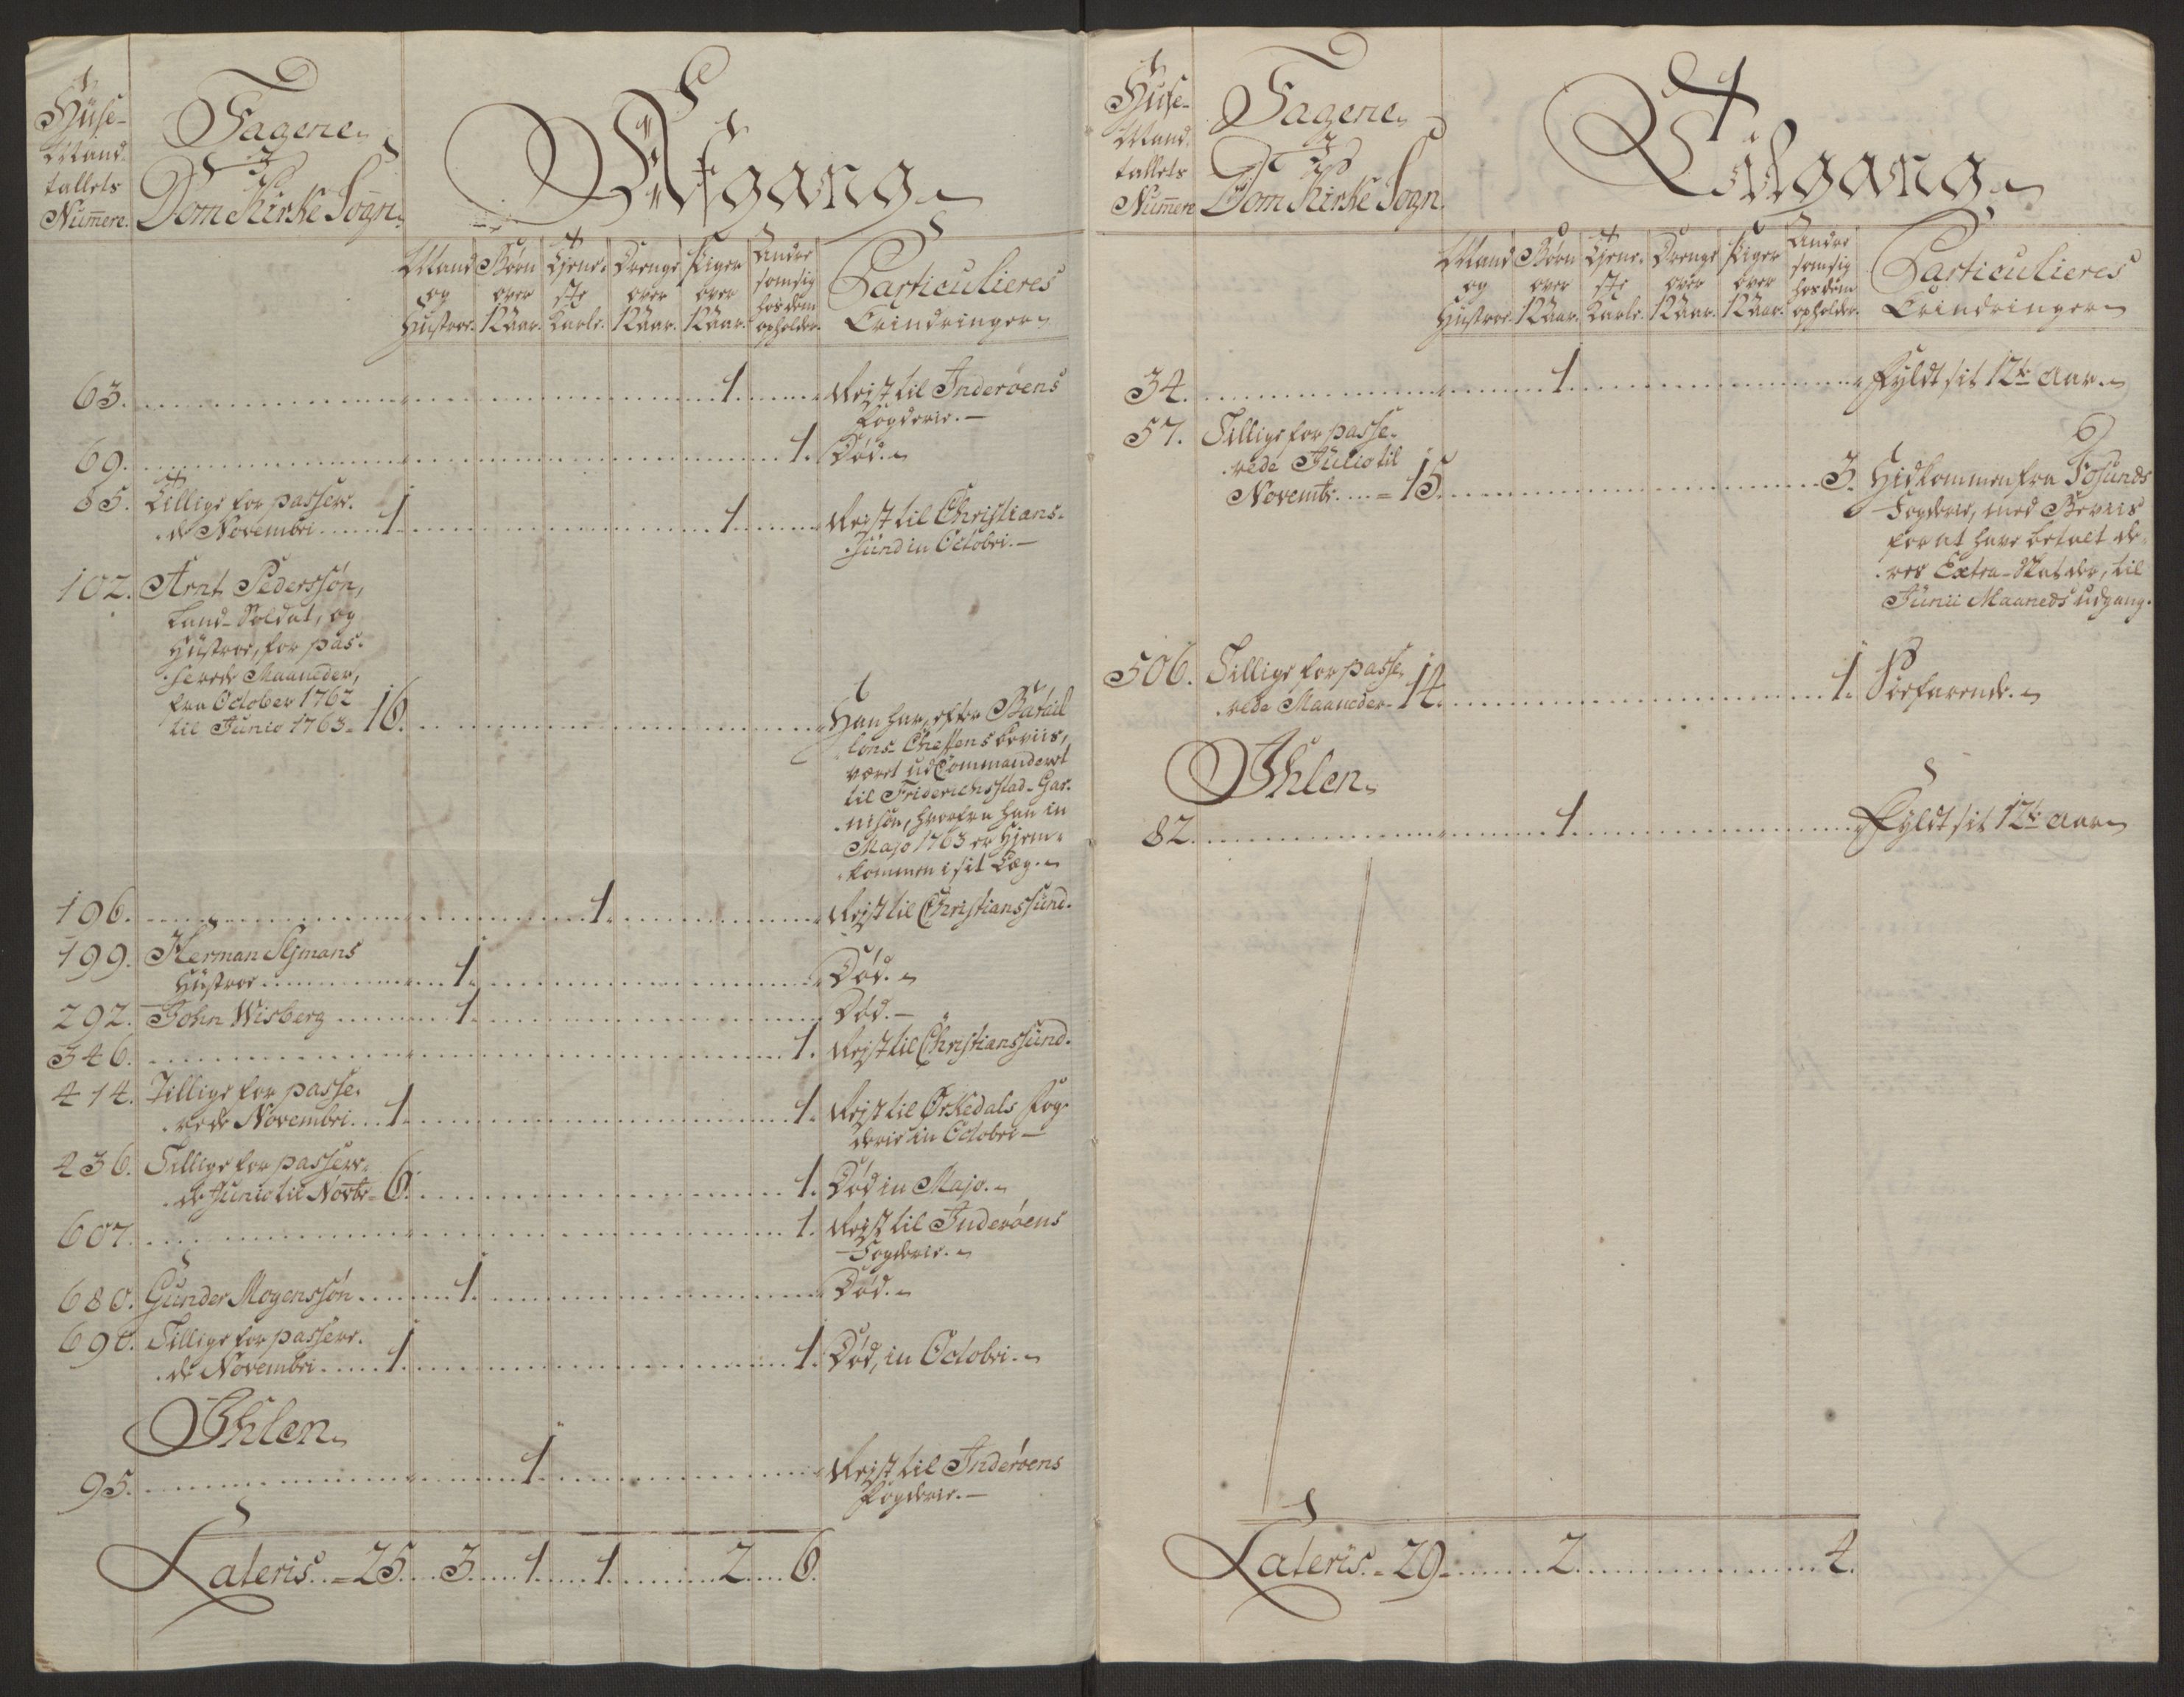 Huse-
Mand-
tallets
Numere.
I
Dom Kirke Sogn.
Afgang
Mand
og
Hustroe.
Børn
over
12 Aar.
Tiene-
ste
Karle.
Drenge
over
12 Aar.
Piger
over
12 Aar.
Andre
som sig
hos dem
opholder.
Particulieres
Erindringer
63. 1. Reist til Inderøens
Fogderie.
69. 1. Død.
85. Tillige for passere-
de Novembri 1. 1. Reist til Christian-
sund in Octobri.
102. Arnt Pederssøn,
Land-Soldat, og
Hustroe, for pas-
serede Maaneder,
fra October 1762
til Junio 1763 = 16. Han har, efter Batail-
lons Cheffens Beviis,
været udCommanderet
til Friderichsstad-Gar-
nison, hvorfra han in
Majo 1763 er hjem-
kommen i sit Læg.
196. 1. Reist til Christianssund.
199. Herman
Hustroe 1. Død.
292. John Wisberg 1. Død.
346. 1. Reist til Christianssund.
414. Tillige for passe-
rede Novembri 1. 1. Reist til Ørkedals Fog-
derie in Octobri
436. Tillige for passere-
de Junio til Novbr = 6. 1. Død in Majo.
607. 1. Reist til Inderøens
Fogderie.
680. Gunder Mogenssøn 1. Død.
690. Tillige for passere-
de Novembri 1. 1. Død, in Octobri.
Ihlen
95. 1. Reist til Inderøens
Fogderie.
Lateris = 25. 3. 1. 1. 2. 6.
Huse-
Mand-
tallets
Numere
I
Dom Kirke Sogn.
Tilgang
Mand
og
Hustroe.
Børn
over
12 Aar.
Tiene-
ste
Karle.
Drenge
over
12 Aar.
Piger
over
12 Aar.
Andre
som sig
hos dem
opholder.
Particulieres
Erindringer
34. 1. Fyldt sit 12te Aar.
57. Tillige for passe-
rede Julio til
Novembr = 15. 3. Hidkommen fra Fosens
Fogderie, med Beviis
for at have betalt de-
res Extra-Skatter, til
Junii Maaneds udgang.
506. Tillige for passe-
rede Maaneder 14. 1. Søefarende.
Ihlen
82. 1. Fyldt sit 12te Aar
Lateris = 29. 2. 4.